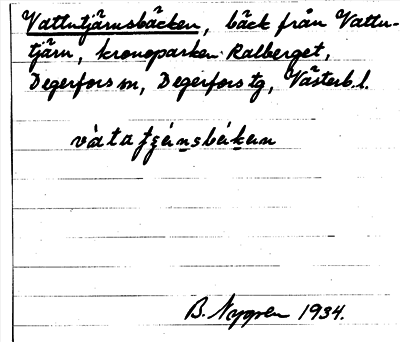 Vattutjärnsbäcken, bäck från Vattu-
tjärn, kronoparken Kalberget,
Degerfors sn, Degerfors tg, Västerb. l.
B. Nygren 1934.